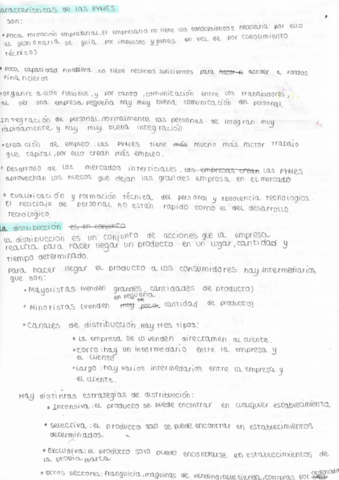 Características de las PYMES
son:
• poca formación empresarial, el empresario no tiene los conocimientos necesaria por ello
al gestionarla se guía por impulsos y ganas en vez de por conocimiento
técnicos
• poca capacidad financiera, no tiene recursos suficientes para hacer el acceder a fondos
financieros
• organización flexible, y por tanto, comunicación entre los trabajadores,
al ser una empresa pequeña hay muy buena comunicación del personal.
Integración de personal, normalmente las personas se integran muy
rápidamente y hay muy buena integración
• creación de empleo, las PYMES tiene más mucho más factor trabajo
que capital, por ello crean más empleo.
• Desarrollo de los mercados intersticiales, las empresas crean las PYMES
aprovechan los huecos que dejan las grandes empresa en el mercado
• Cualificación y formación técnica del personal y solvencia tecnológica.
El reciclaje de personal no están rápido como el del desarrollo
tecnológico
La distribución es un conjunto
la distribución es un conjunto de acciones que la empresa
realiza para hacer llegar un producto en un lugar, cantidad y
tiempo determinado.
para hacer llegar el producto a los consumidores hay intermediarios,
que son:
• Mayoristas (venden grandes cantidades de producto)
• Minoristas (venden muy pocas en pequeña cantidad de producto)
• Canales de distribución, hay tres tipos:
• la empresa se lo venden directamen al cliente.
• corto: hay un intermediario entre la empresa y
el cliente
• largo: hay varios intermediarios entre la empresa y
el cliente.
Hay distintas estrategias de distribución:
• Intensiva: el producto se puede encontrar en cualquier establecimiento
• Selectiva: el producto solo se puede encontrar en establecimientos
determinados.
• Exclusiva: el producto solo puede encontrarse en establecimientos de
la propia marca
• Otros sectores: franquicia, maquinas de vending, teletienda, compras por ordenador